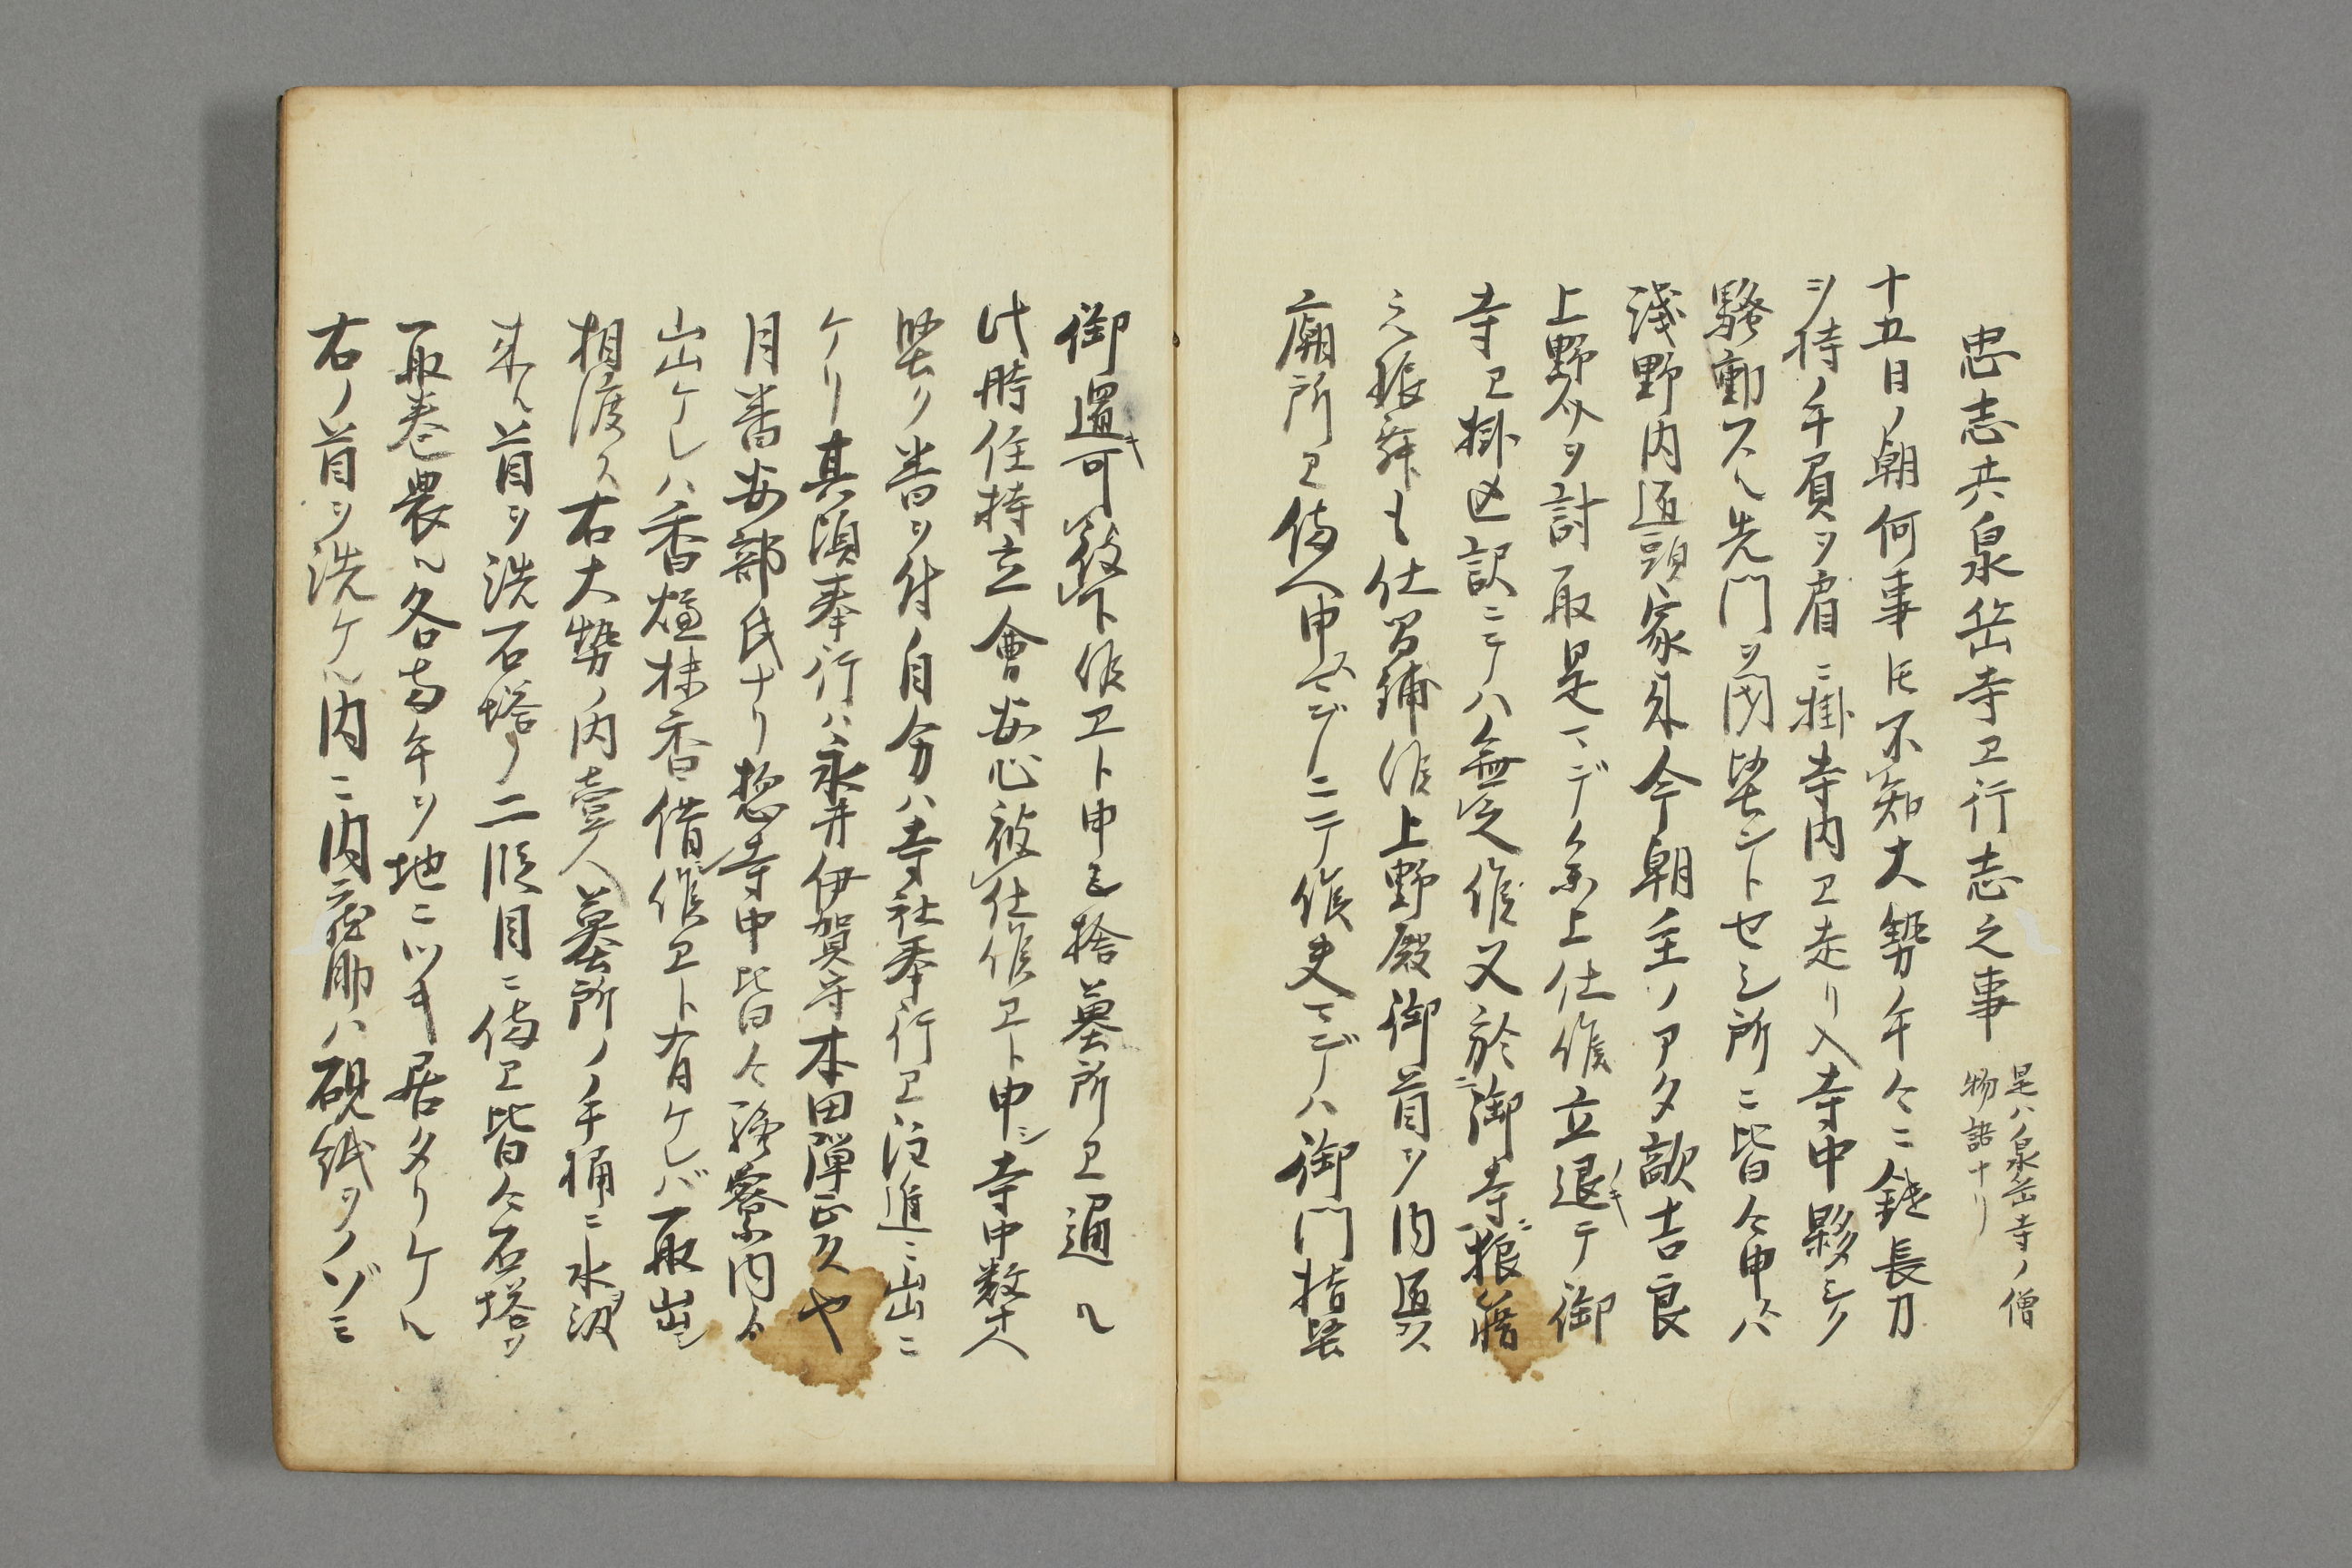 忠志共泉岳寺ヱ行志之事
是ハ泉岳寺ノ僧
物語ナリ
十五日ノ朝何事トモ不知大勢手々ニ鑓長刀
ヲ持ノ手負ヲ肩ニ掛寺内ヱ走リ入寺中夥シク
騒動スル先門ヲ閉堅シトセシ所ニ皆々申スハ
浅野内匠頭家来今朝主ノアタ敵吉良
上野介ヲ討取是マデ参上仕候立退キテ御
寺ヱ掛込訳ニテハ無之候又於御寺ニ狼藉
之振舞も仕間鋪候上野殿御首ヲ内匠
廟所ヱ備ヘ申マデノ二テ候夫マデノハ御門指堅
御還可被下候ヱト申シ捨墓所ヱ通ル
此時住持立會安心被仕候ヱト申シ寺中数十人
堅ク番ヲ付自分ハ寺社奉行ヱ注進ニ出ニ
ケリ其頃奉行ハ永井伊賀守本田弾正久や
月番安部氏ナリ惣寺中皆々騒寮内ゟ
出ケレハ香爐抹香借シ候ヱト有ケレバ取出シ
相渡ス右大勢ノ内壹人墓所ノ手桶ニ水汲
来ル首ヲ洗石塔ノ二段目ニ備ヱ皆々石塔ヲ
取巻農ル各両手ヲ地ニツキ居タリケル
右ノ首ヲ洗ケル内ニ内蔵助ハ硯紙ヲノゾミ